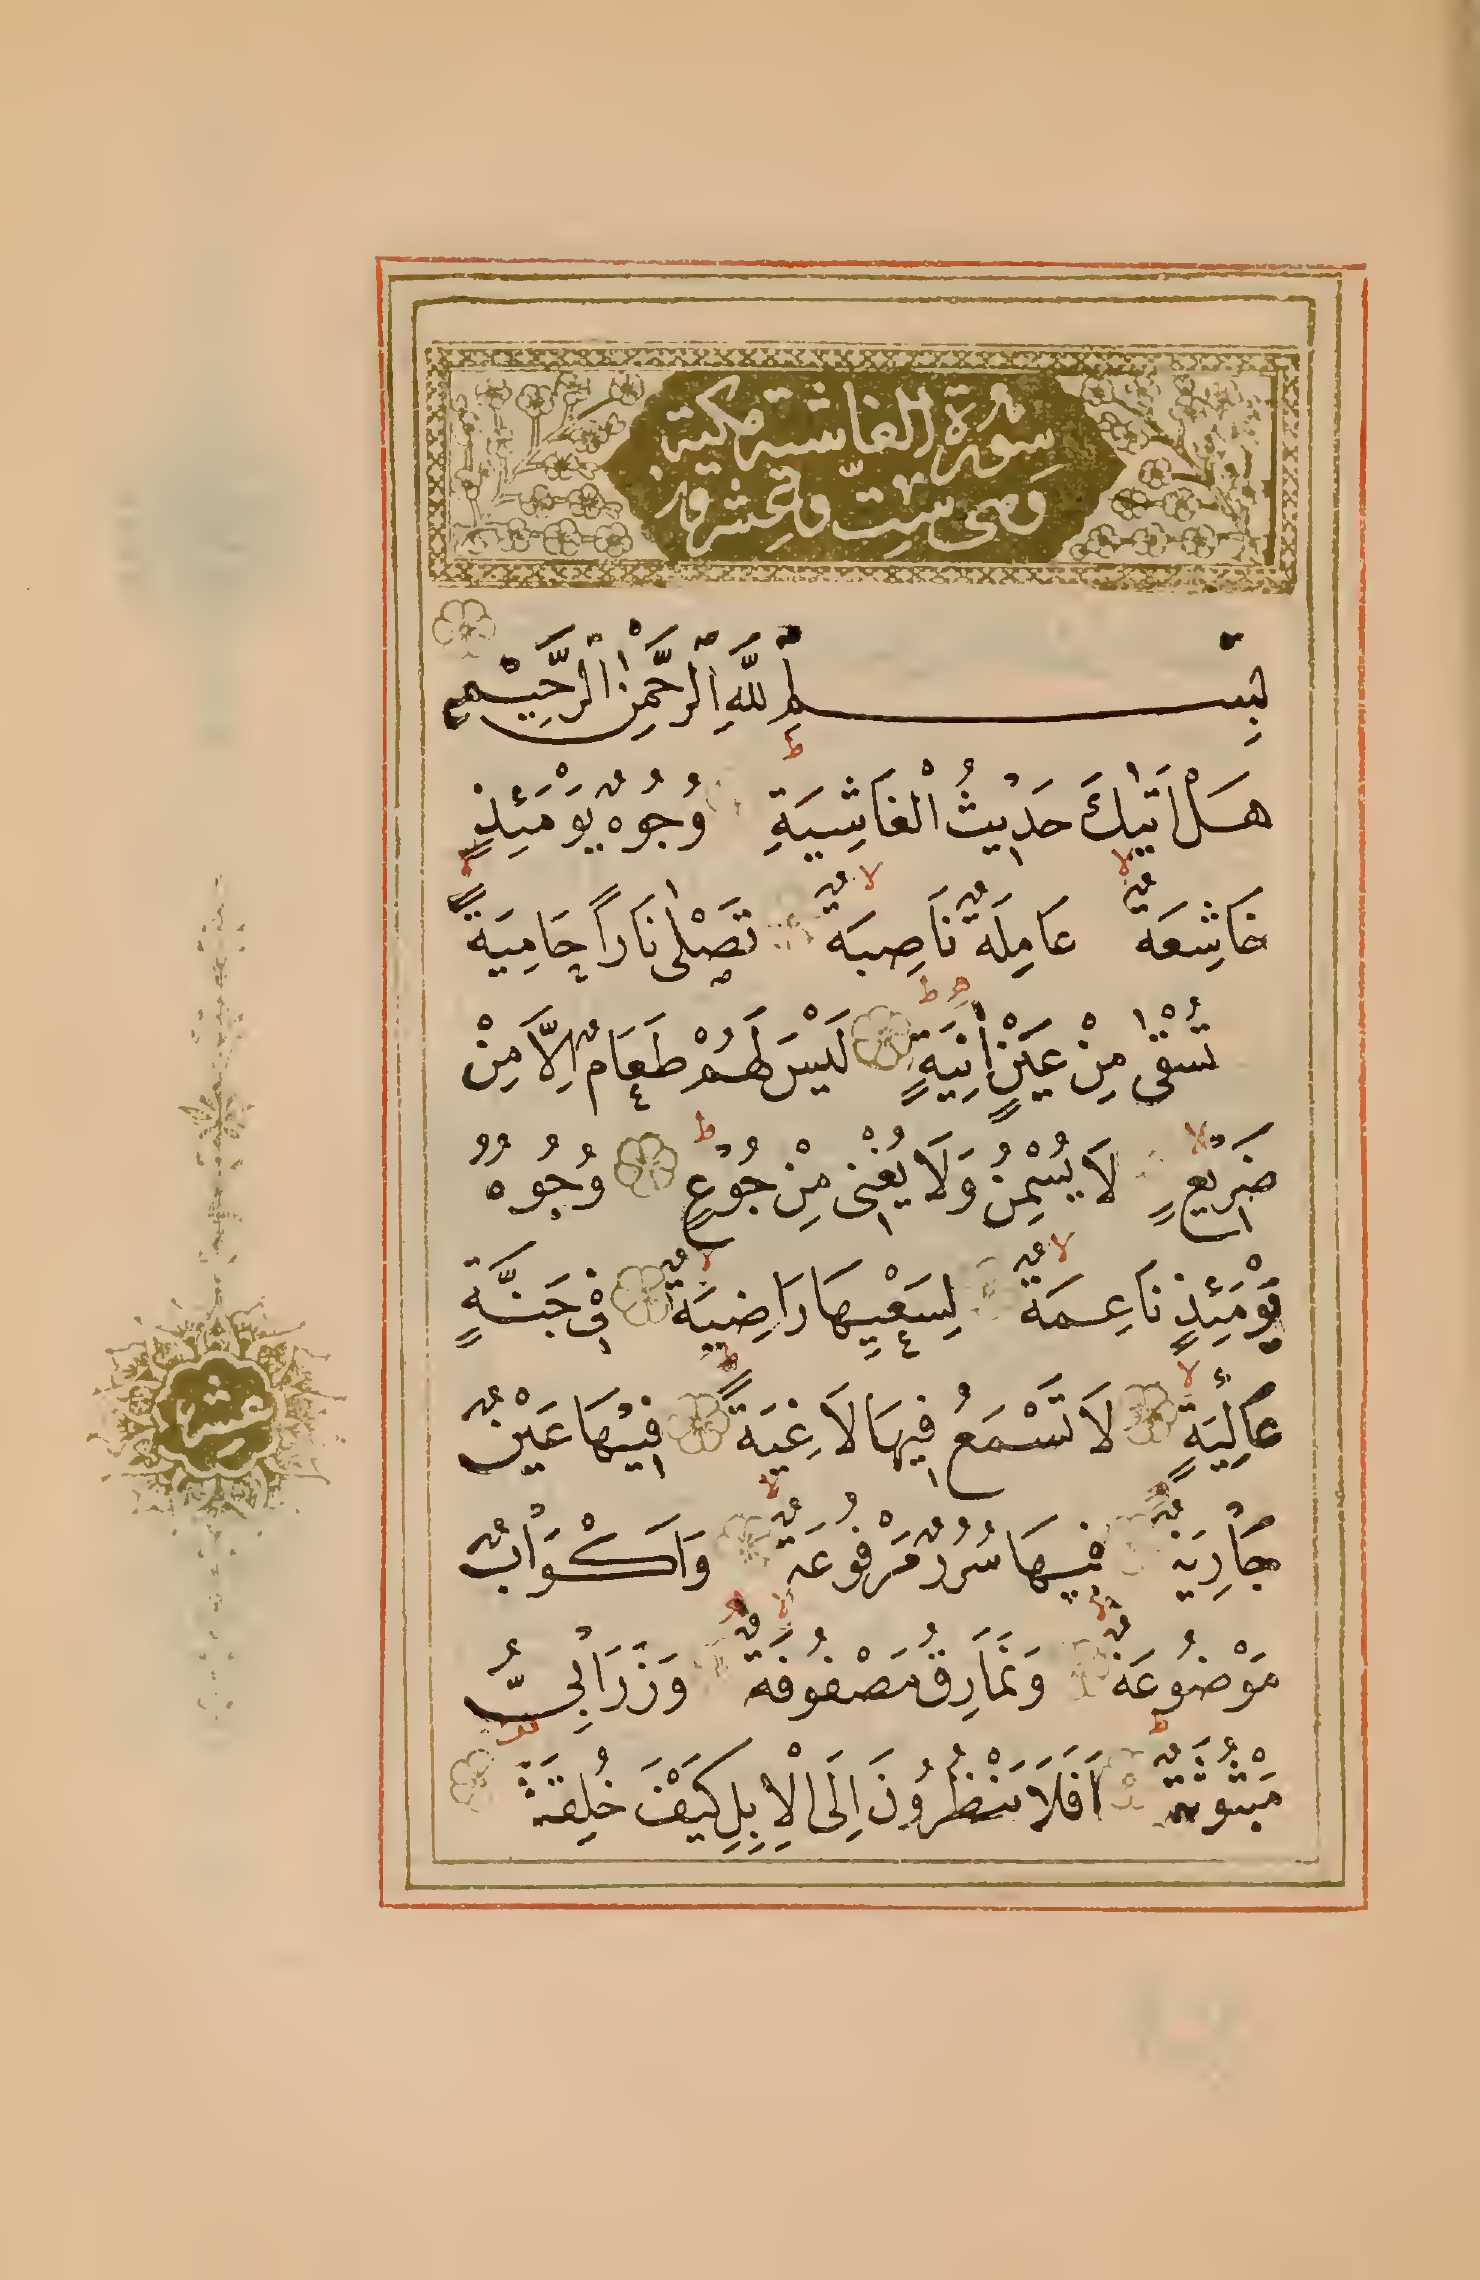 سورة الغاشية مكية
وهى ست وعشرون
بِسْمِ اللَّهِ الرَّحْمٰنِ الرَّحِيْمِ
هَلْ اَتٰيكَ حَدِيْثُ الْغَاشِيَةِ وُجُوهٌ يَوْمَئِذٍ
خَاشِعَةٌ عَامِلَةٌ نَاصِبَةٌ تَصْلٰى نَاراً حَامِيَةً
تُسْقٰى مِنْ عَيْنٍ اٰنِيَةٍ لَيْسَ لَهُمْ طَعَامٌ اِلَّا مِنْ
ضَرِيْعٍ لَا يُسْمِنُ وَلَا يُغْنِى مِنْ جُوْعٍ وُجُوهٌ
يَوْمَئِذٍ نَاعِمَةٌ لِسَعْيِهَا رَاضِيَةٌ فِى جَنَّةٍ
عَالِيَةٍ لَا تَسْمَعُ فِيهَا لَاغِيَةً فِيْهَا عَيْنٌ
جَارِيَةٌ فِيهَا سُرُرٌ مَرْفُوعَةٌ وَاَكْوَابٌ
مَوْضُوعَةٌ وَنَمَارِقُ مَصْفُوفَةٌ وَزَرَابِىُّ
مَبْثُوثَةٌ اَفَلَا يَنْظُرُونَ اِلَى الْاِبِلِ كَيْفَ خُلِقَتْ
عشر